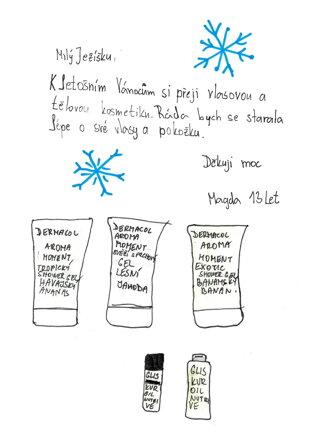 Milý Ježíšku,
K letošním Vánocům si přeji vlasovou a
tělovou kosmetiku. Ráda bych se starala
lépe o své vlasy a pokožku.
Děkuji moc
Magda 13 let
DERMACOL
AROMA
MOMENT
TROPICKÝ
SHOWER GEL
HAVAJSKÝ
ANANAS
DERMACOL
AROMA
MOMENT
GEL
LESNÍ
JAHODA
DERMACOL
AROMA
MOMENT
EXOTIC
SHOWER GEL
BAHAMSKÝ
BANÁN
GLIS
KUR
OIL
NUTRI
VE
GLIS
KUR
OIL
NUTRI
VE